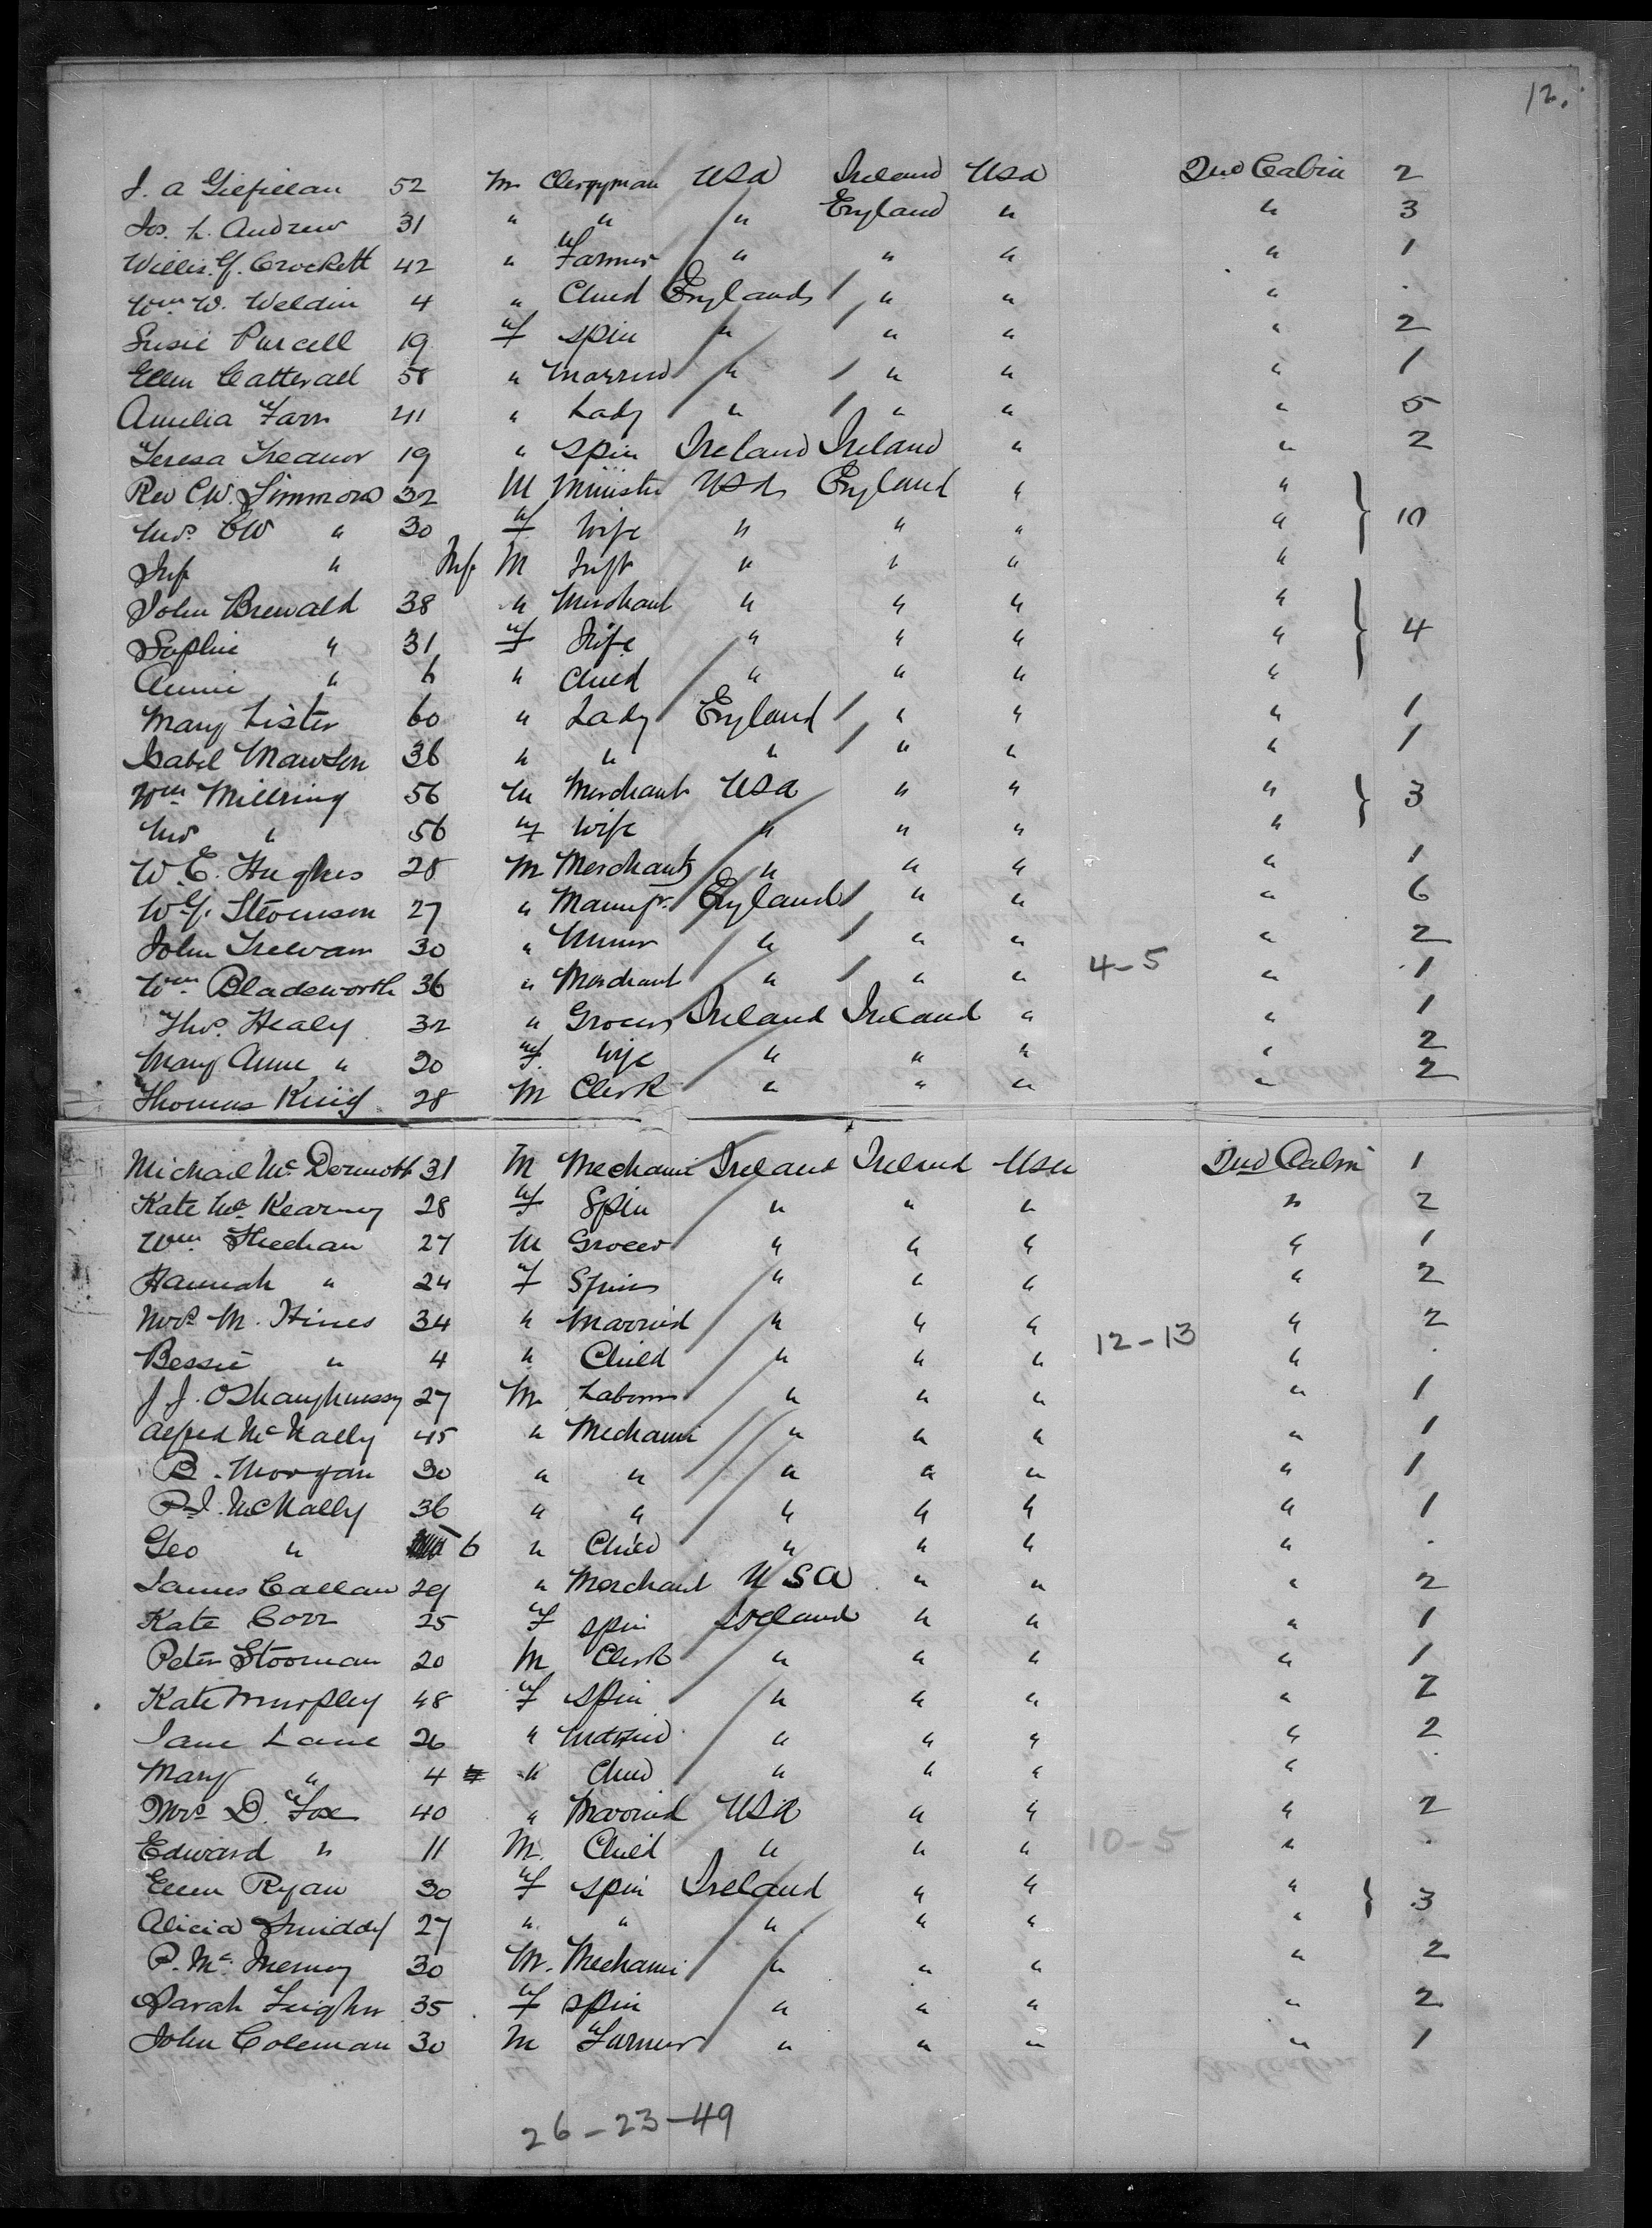 12.
J. A Gilfillan 52 M Clergyman USA Ireland USA 2nd Cabin 2
Jos. L. Andrew 31 " " " England " " 3
Willis. G. Crockett 42 " Farmer " " " " 1
Wm. W. Weldin 4 " Child England " " "
Susie Purcell 19 F Spin " " " " 2
Ellen Catterall 58 " Married " " " " 1
Amelia Farr 41 " Lady " " " " 5
Teresa Treanor 19 " Spin Ireland Ireland " " 2
Rev C.W. Simmons 32 M Minister USA England " "
Mrs. CW " 30 F Wife " " " " 10
Inf " Inf M Inft " " " "
John Brewald 38 " Merchant " " " "
Sophie " 31 F Wife " " " " 4
Annie " 6 " Child " " " "
Mary Lister 60 " Lady England " " " 1
Isabel Mawson 36 " " " " " " 1
Wm Millring 56 M Merchant USA " " " 3
Mrs " 56 F Wife " " " "
W. E. Hughes 28 M Merchant " " " " 1
W. G. 27 " Manufr. England " " " 6
John 30 " Miner " " " " 2
4-5
Wm Bladeworth 36 " Merchant " " " " 1
Thos. Healy 32 " Grocer Ireland Ireland " " 1
Mary Anne " 20 F. Wife " " " " 2
Thomas King 28 M Clerk " " " " 2
Michael McDermott 31 M Mechanic Ireland Ireland USA 2nd Cabin 1
Kate McKearney 28 F Spin " " " " 2
Wm Sheehan 27 M Grocer " " " " 1
Hannah " 24 F Spin " " " " 2
Mrs M. Hines 34 " Married " " " " 2
12-13
Bessie " 4 " Child " " " "
J. J. OShaughnessy 27 M Laborer " " " " 1
Alfred McNally 45 " Mechanic " " " " 1
B. Morgan 30 " " " " " " 1
P. J. McNally 36 " " " " " " 1
Geo " 6 " Child " " " "
James Callan 29 " Merchant USA " " " 2
Kate Corr 25 F Spin Ireland " " " 1
Peter 20 M Clerk " " " " 1
Kate Murphy 48 F Spin " " " " 2
Jane Lane 26 " Married " " " " 2
Mary " 4 " Child " " " "
Mrs D. Fox 40 " Married USA " " " 2
10-5
Edward " 11 M. Child " " " "
Ellen Ryan 30 F Spin Ireland " " " 3
Alicia Smiddy 27 " " " " " "
P. Mc 30 M. Mechanic " " " " 2
Sarah 35 F Spin " " " " 2
John Coleman 30 M Farmer " " " " 1
26-23-49